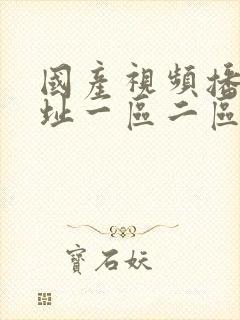 國產視頻播
址一區二區
寶石妖